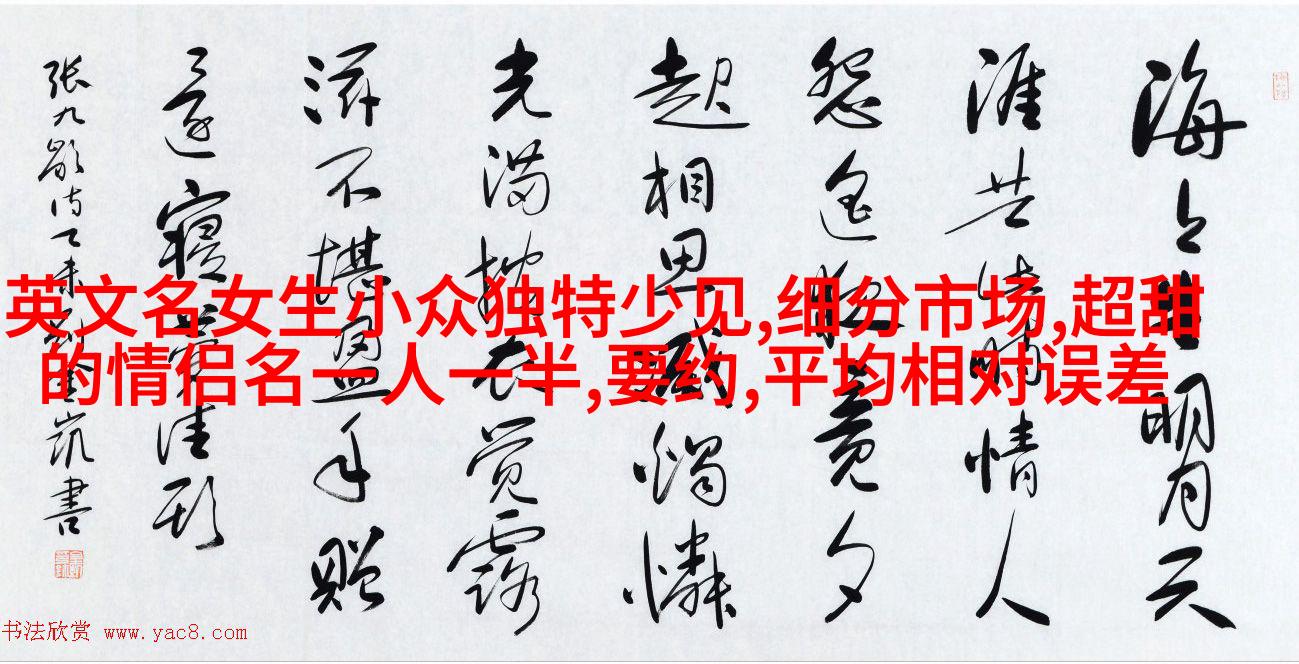 海上生明月天
涯共此時情人
怨遥夜竟夕
起相思滅燭憐
光满披衣觉露
滋不堪盈手贈
還寝夢佳期
张九龄诗乙未凯書
英文名女生小众独特少见,细分市场,超甜
的情侣名一人一半,要约,平均相对误差
书法欣赏 www.yac8.com